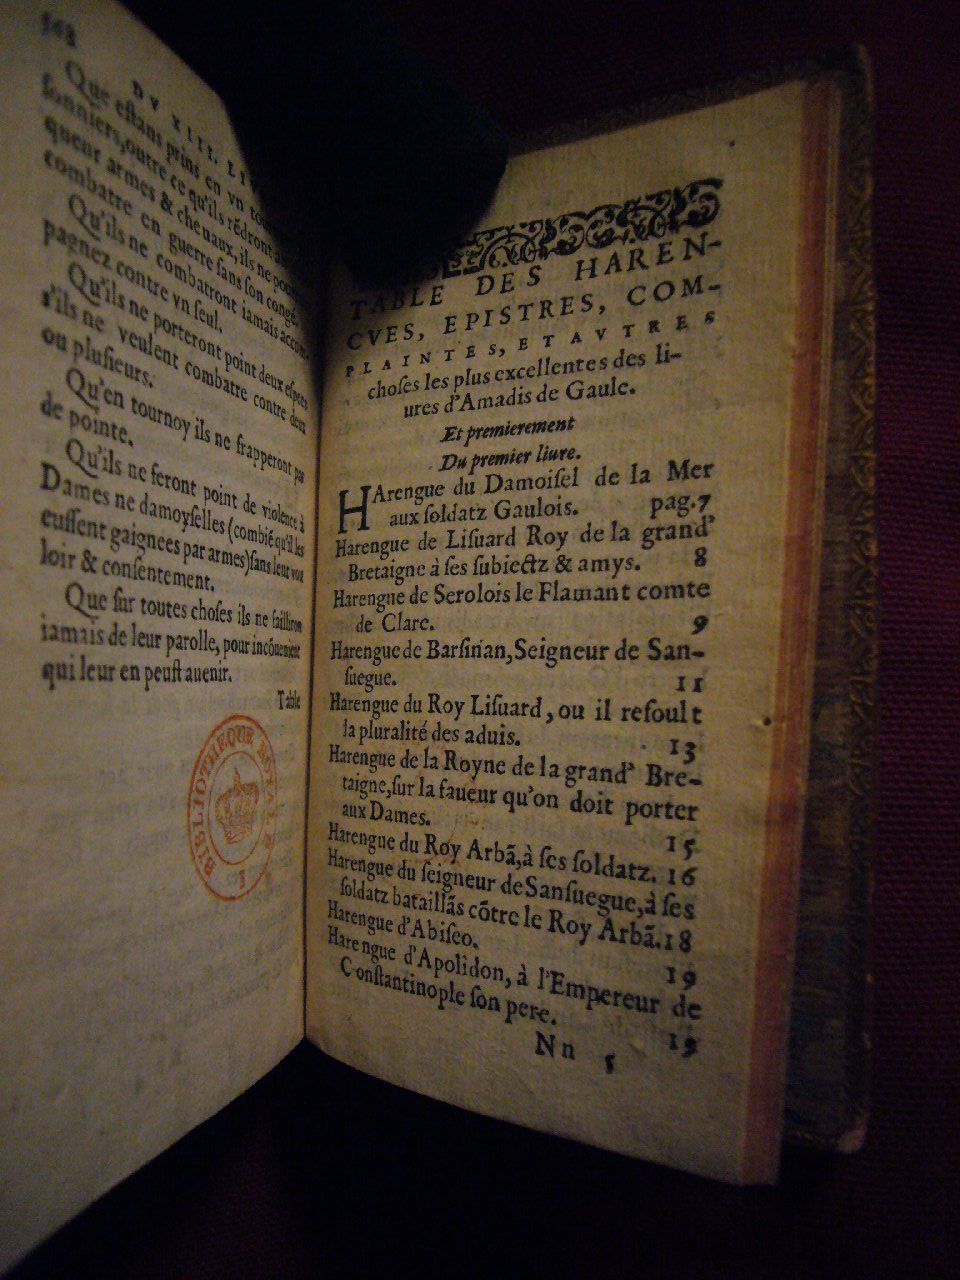 568
DV XIII. LIV
Que estans prins en vn tour
sonniers, outre ce qu'ils rēdront
queur armes & cheuaux, ils ne pour
combatre en guerre sans son congé.
Qu'ils ne combatront iamais accom-
pagnez contre vn seul.
Qu'ils ne porteront point deux espees
s'ils ne veulent combatre contre deux
ou plusieurs.
Qu'en tournoy ils ne frapperont pas
de pointe.
Qu'ils ne feront point de violence à
Dames ne damoyselles (combiē qu'il les
eussent gaignees par armes) sans leur vou
loir & consentement.
Que sur toutes choses ils ne failliron
iamais de leur parolle, pour incōuenient
qui leur en peust auenir.
Table
BIBLIOTHEQUE
TABLE DES HAREN-
CVES, EPISTRES, COM-
PLAINTES, ET AVTRES
choses les plus excellentes des li-
ures d'Amadis de Gaule.
Et premierement
Du premier liure.
HArengue du Damoisel de la Mer
aux soldatz Gaulois. pag. 7
Harengue de Lisuard Roy de la grand'
Bretaigne à ses subiectz & amys. 8
Harengue de Serolois le Flamant comte
de Clare. 9
Harengue de Barsinan, Seigneur de San-
suegue. 11
Harengue du Roy Lisuard, ou il resoult
la pluralité des aduis. 13
Harengue de la Royne de la grand' Bre-
taigne, sur la faueur qu'on doit porter
aux Dames. 15
Harengue du Roy Arbā, à ses soldatz. 16
Harengue du seigneur de Sansuegue, à ses
soldatz bataillās cōtre le Roy Arbā. 18
Harengue d'Abiseo. 19
Harengue d'Apolidon, à l'Empereur de
Constantinople son pere. 19
Nn 5